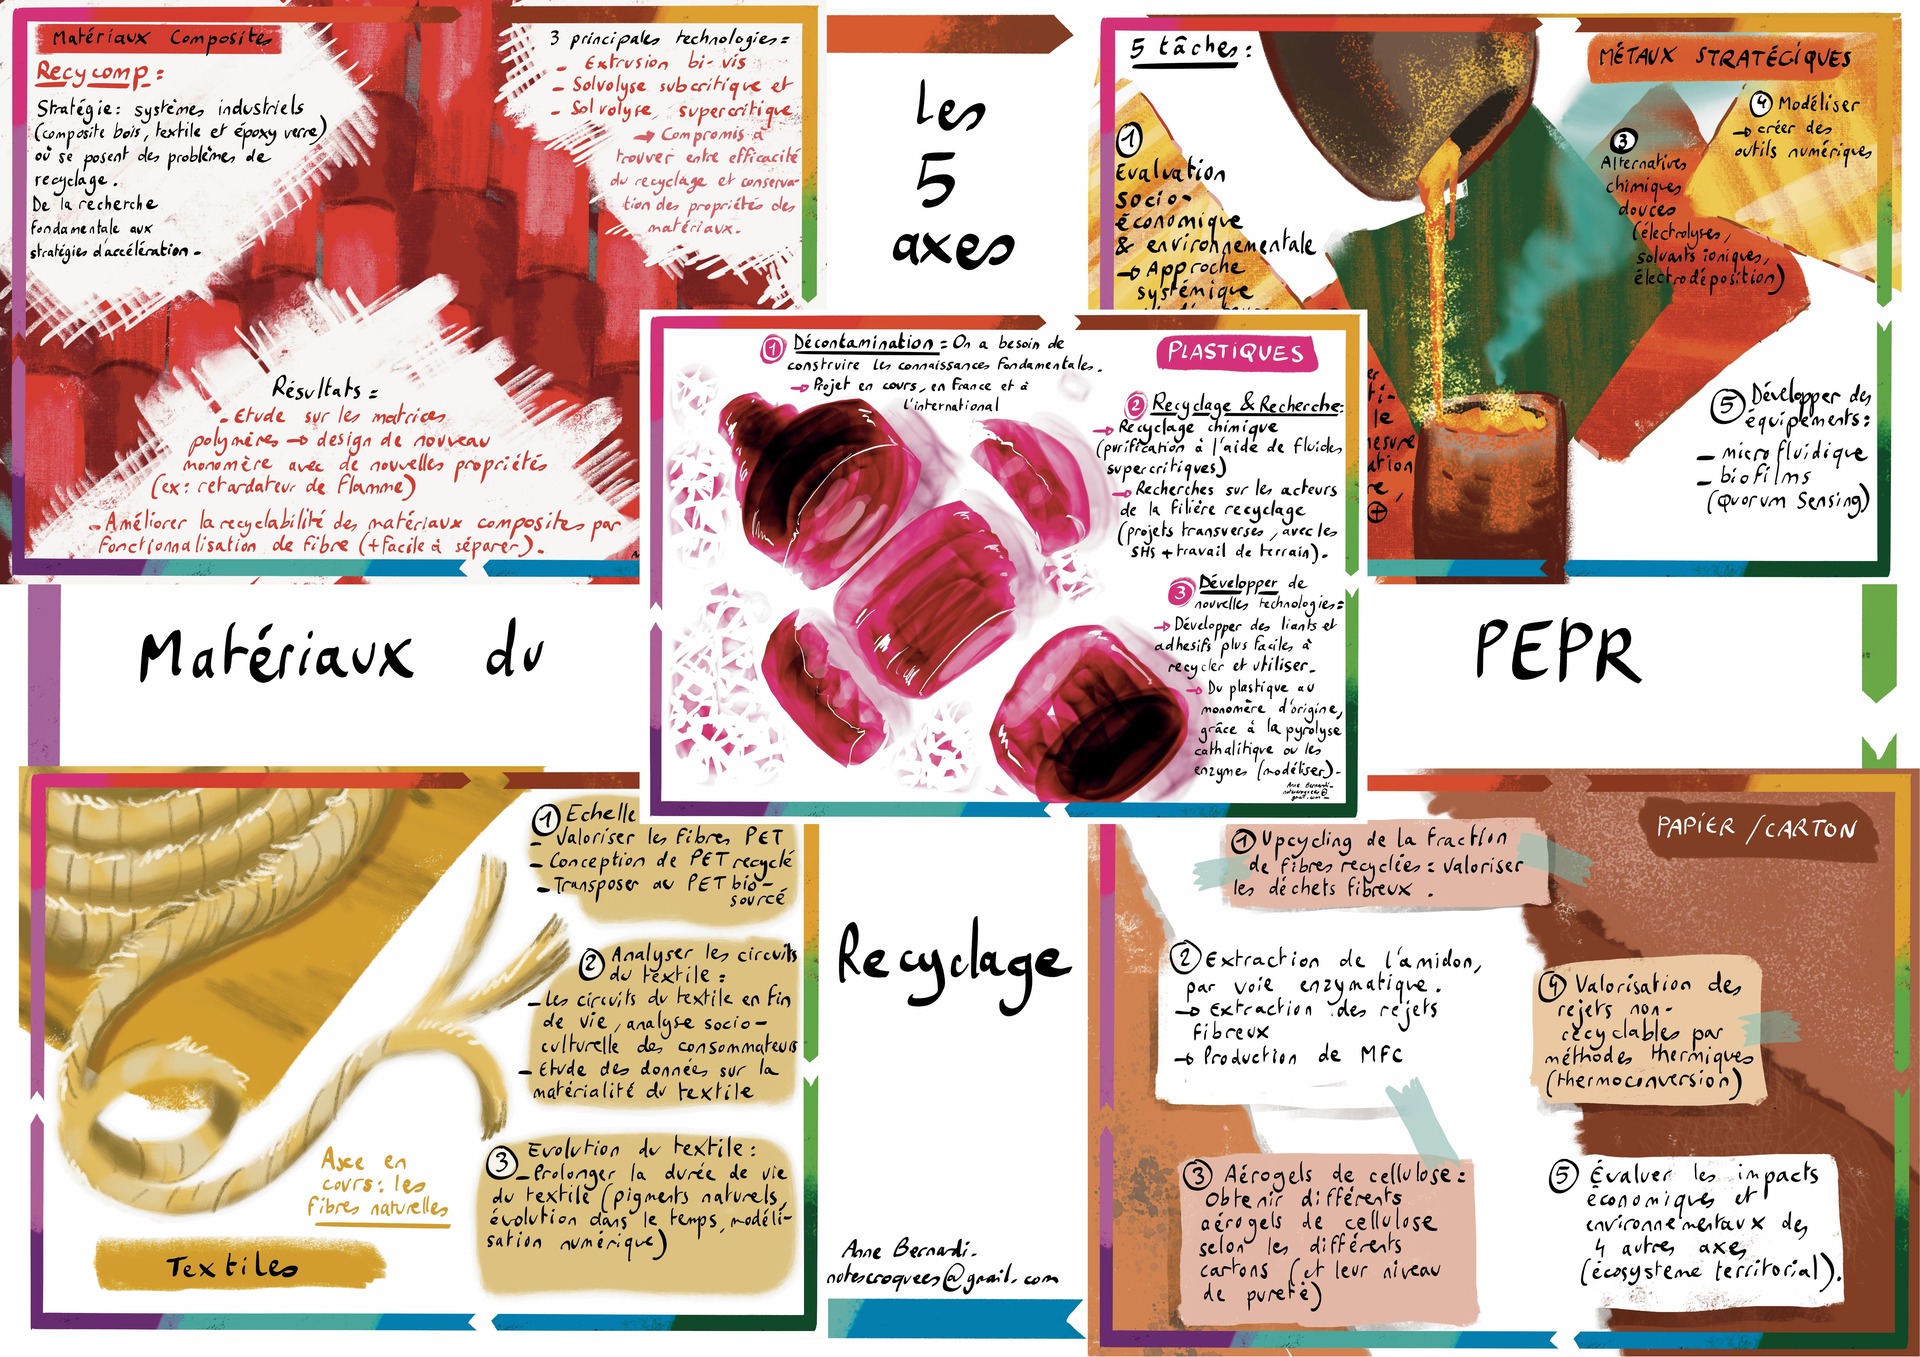 Matériaux Composites
Recycomp :
Stratégie : systèmes industriels
(composite bois, textile et époxy verre)
où se posent des problèmes de
recyclage.
De la recherche
fondamentale aux
stratégies d'accélération.
3 principales technologies =
- Extrusion bi-vis
- Solvolyse subcritique et
- Solvolyse, supercritique
→ Compromis à
trouver entre efficacité
du recyclage et conserva-
tion des propriétés des
matériaux.
Résultats =
- Etude sur les matrices
polymères → design de nouveau
monomère avec de nouvelles propriétés
(ex: retardateur de flamme)
- Améliorer la recyclabilité des matériaux composites par
fonctionnalisation de fibre (+ facile à séparer).
Les
5
axes
5 tâches :
MÉTAUX STRATÉGIQUES
1
Evaluation
socio-
économique
& environnementale
→ Approche
systémique
3
Alternatives
chimiques
douces
(électrolyses,
solvants ioniques,
électrodéposition)
4 Modéliser
→ créer des
outils numériques
5 Développer des
équipements :
- microfluidique
- biofilms
(Quorum Sensing)
PLASTIQUES
1 Décontamination = On a besoin de
construire les connaissances fondamentales.
→ Projet en cours, en France et à
l'international
2 Recyclage & Recherche:
→ Recyclage chimique
(purification à l'aide de fluides
supercritiques)
→ Recherches sur les acteurs
de la filière recyclage
(projets transverses, avec les
SHS + travail de terrain).
3 Développer de
nouvelles technologies=
→ Développer des liants et
adhesifs plus faciles à
recycler et utiliser.
→ Du plastique au
monomère d'origine,
grâce à la pyrolyse
cathalitique ou les
enzymes (modéliser).
Anne Bernardi.
notescroquees@
gmail.com
Matériaux du
PEPR
Recyclage
1 Echelle
- Valoriser les fibres PET
- Conception de PET recyclé
- Transposer au PET bio-
sourcé
2 Analyser les circuits
du textile :
- Les circuits du textile en fin
de vie, analyse socio-
culturelle des consommateurs
- Etude des données sur la
matérialité du textile
3 Evolution du textile :
- Prolonger la durée de vie
du textile (pigments naturels,
évolution dans le temps, modéli-
sation numérique)
Axe en
cours : les
fibres naturelles
Textiles
Anne Bernardi.
notescroquees@gmail.com
PAPIER / CARTON
1 Upcycling de la fraction
de fibres recyclées = valoriser
les déchets fibreux.
2 Extraction de l'amidon,
par voie enzymatique.
→ Extraction des rejets
fibreux
→ Production de MFC
3 Aérogels de cellulose =
Obtenir différents
aérogels de cellulose
selon les différents
cartons (et leur niveau
de pureté)
4 Valorisation des
rejets non-
recyclables par
méthodes thermiques
(thermoconversion)
5 Évaluer les impacts
économiques et
environnementaux des
4 autres axes
(écosystème territorial).